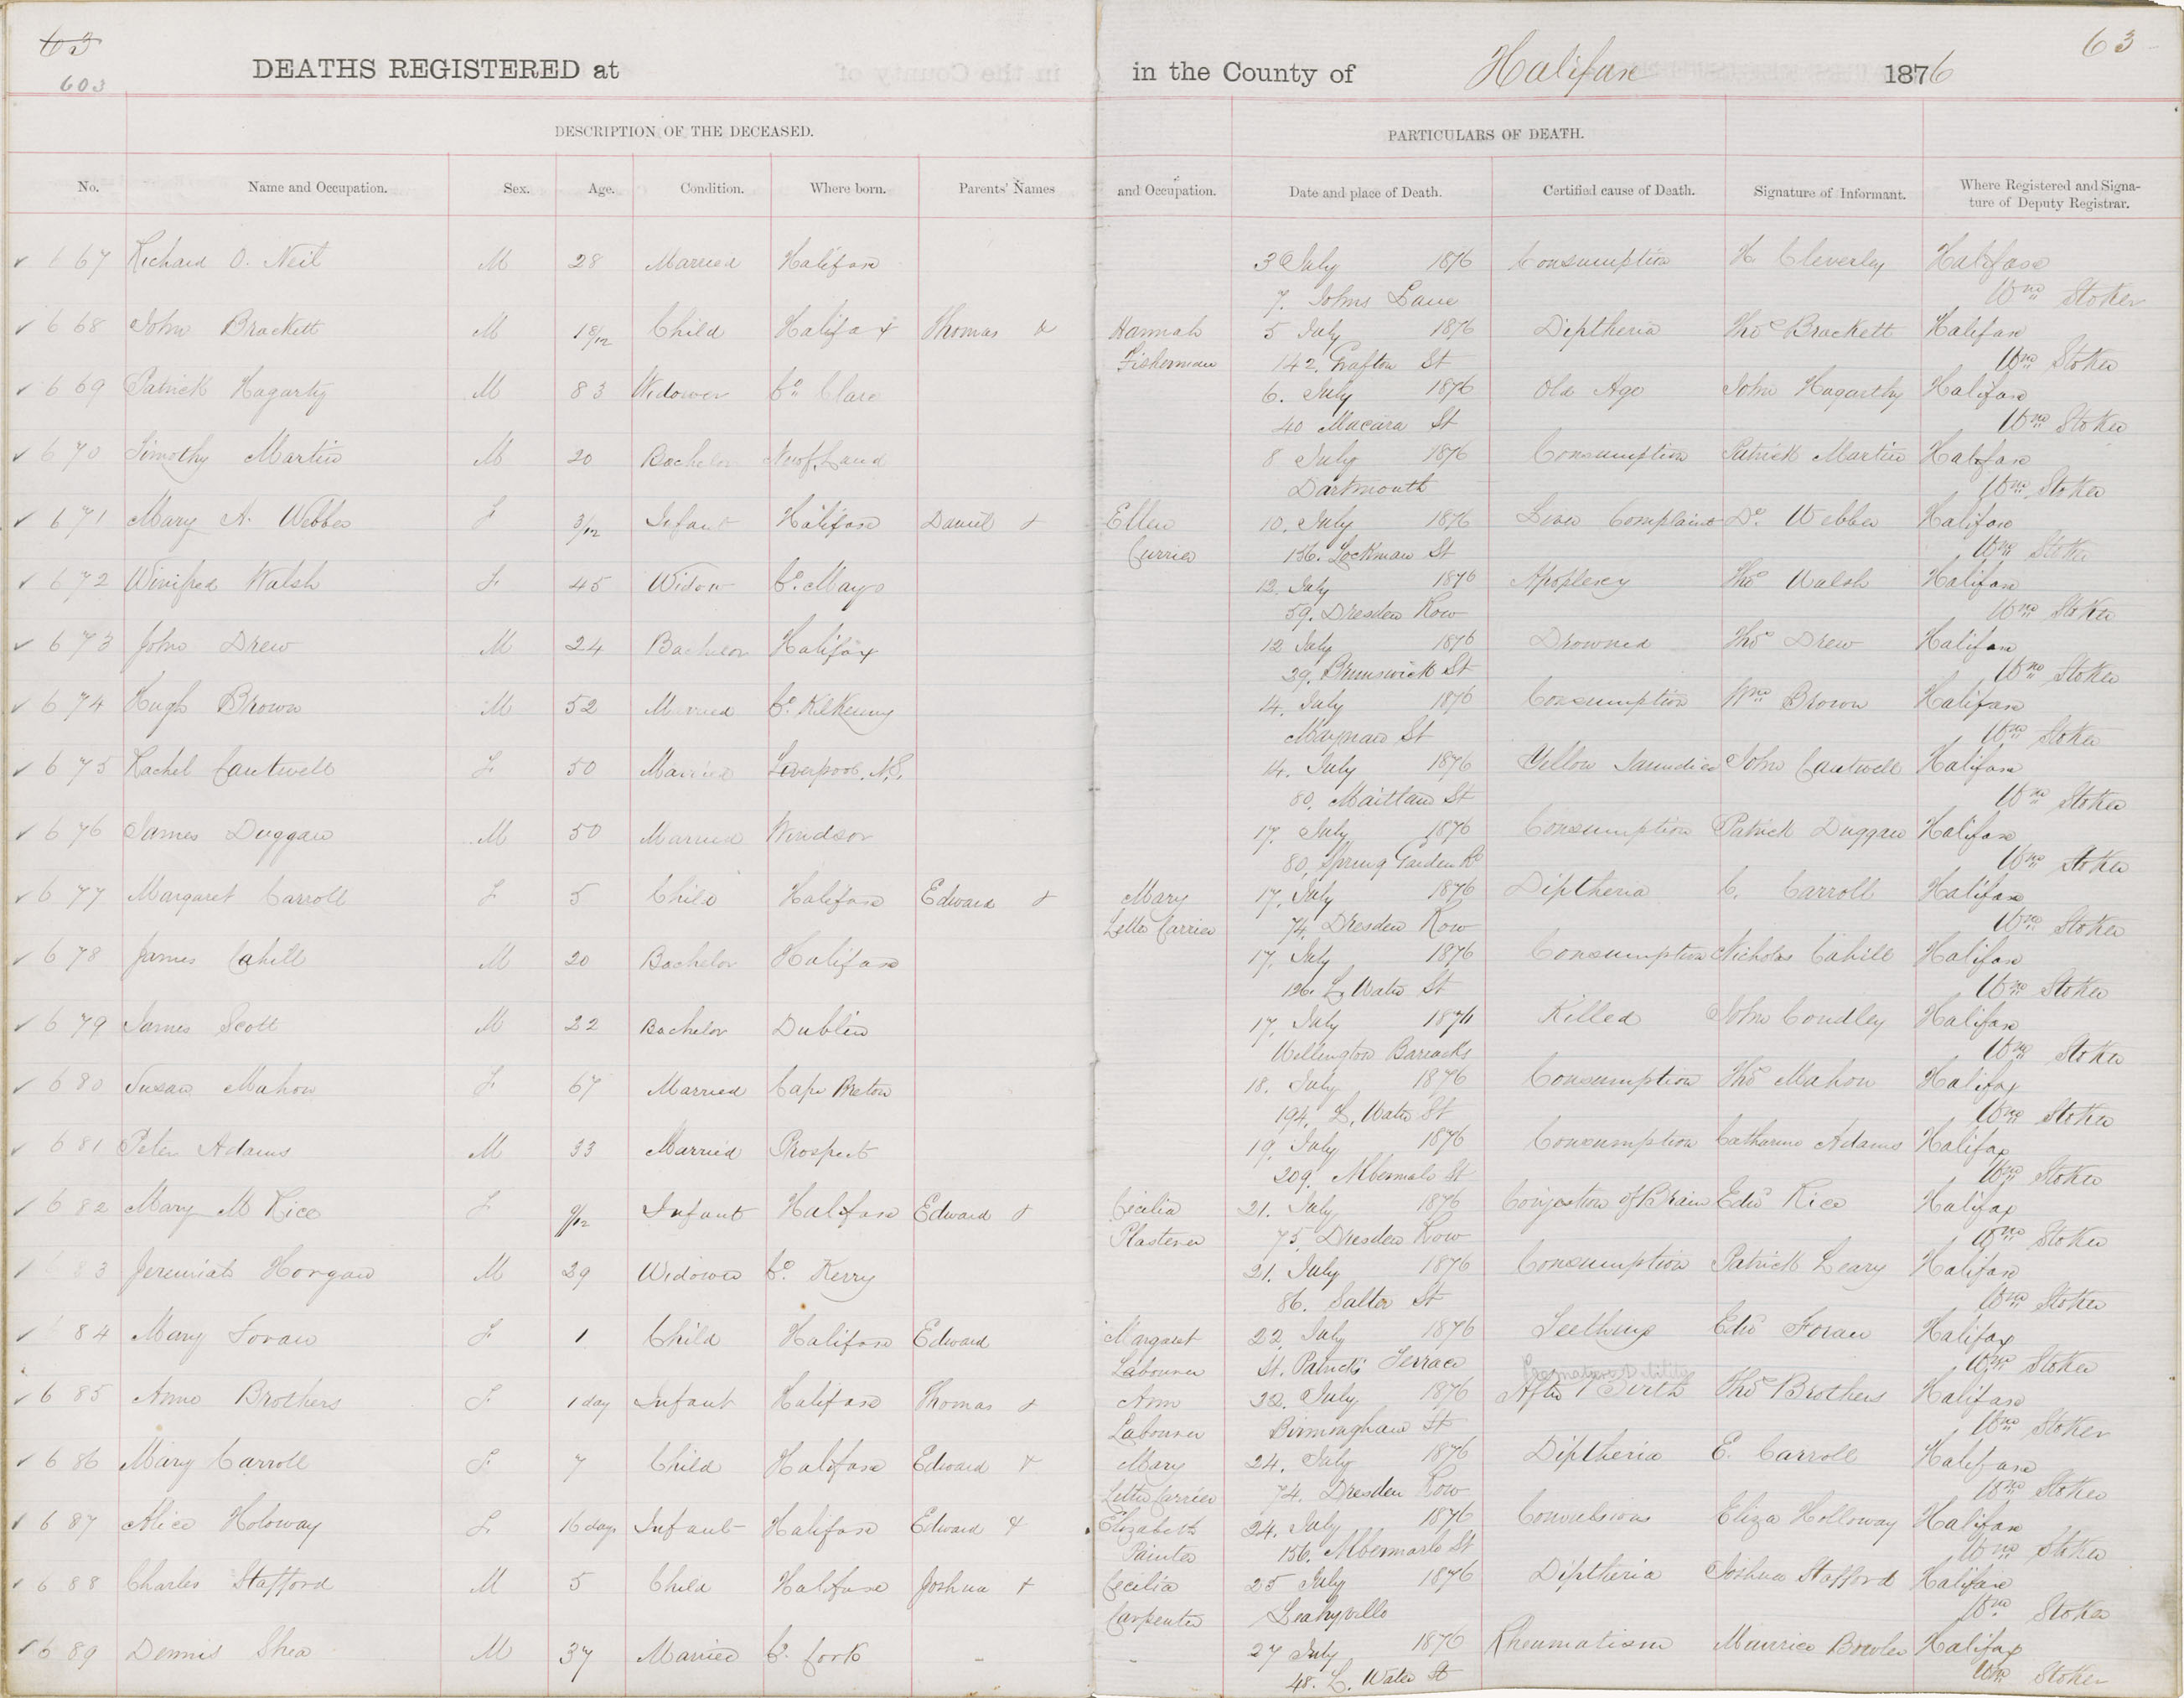 63
603
DEATHS REGISTERED at in the County of Halifax 1876
63
DESCRIPTION OF THE DECEASED. PARTICULARS OF DEATH.
No. Name and Occupation. Sex. Age. Condition. Where born. Parents' Names and Occupation. Date and place of Death. Certified cause of Death. Signature of Informant. Where Registered and Signa-
ture of Deputy Registrar.
667 Richard O. Neil M 28 Married Halifax July 1876 Consumption H. Cleverley Halifax
7. Johns Lane Wm Stoker
668 John Brackett M Child Halifax Thomas & Hannah 5 July 1876 Diptheria Thos Brackett Halifax
Fisherman 142. Grafton St Wm Stoker
669 Patrick Hagarty M 83 Widower Co. Clare 6. July 1876 Old Age John Hagarthy Halifax
40 Macara St Wm Stoker
670 Timothy Martin M 20 Bachelor Newf.Land 8 July 1876 Consumption Patrick Martin Halifax
Dartmouth Wm Stoker
671 Mary A. Webber F 3/12 Infant Halifax Daniel & Ellen 10. July 1876 Liver Complaint D. Webber Halifax
Currier 156. Lockman St Wm Stoker
672 Winifred Walsh F 45 Widow Co. Mayo 12. July 1876 Apoplexy Thos Walsh Halifax
59. Dresden Row Wm Stoker
673 John Drew M 24 Bachelor Halifax 12 July 1876 Drowned Thos Drew Halifax
39. Brunswick St Wm Stoker
674 Hugh Brown M 52 Married Co. Kilkenny 14. July 1876 Consumption Wm Brown Halifax
Maynard St Wm Stoker
675 Rachel Cantwell F 50 Married Liverpool. N.S. 14. July 1876 Yellow Jaundice John Cantwell Halifax
80. Maitlan St Wm Stoker
676 James Duggan M 50 Married Windsor 17. July 1876 Consumption Patrick Duggan Halifax
80, Spring Garden Rd Wm Stoker
677 Margaret Carroll F 5 Child Halifax Edward & Mary 17. July 1876 Diptheria C. Carroll Halifax
Letter Carrier 74. Dresden Row Wm Stoker
678 James Cahill M 20 Bachelor Halifax 17. July 1876 Consumption Nicholas Cahill Halifax
126. L. Water St Wm Stoker
679 James Scott M 22 Bachelor Dublin 17. July 1876 Killed John Coudley Halifax
Wellington Barracks Wm Stoker
680 Susan Mahon F 67 Married Cape Breton 18. July 1876 Consumption Thos Mahon Halifax
194. L. Water St Wm Stoker
681 Peter Adams M 33 Married Prospect 19. July 1876 Consumption Catharine Adams Halifax
209. Albermale St Wm Stoker
682 Mary M Rice F 9/12 Infant Halifax Edward & Cecilia 21. July 1876 Conjestion of Brain Edwd Rice Halifax
Plasterer 75. Dresden Row Wm Stoker
683 Jeremiah Horgan M 29 Widower Co. Kerry 21. July 1876 Consumption Patrick Leary Halifax
86. Salter St Wm Stoker
684 Mary Foran F 1 Child Halifax Edward Margaret 22. July 1876 Teething Edwd Foran Halifax
Labourer St. Patrick's Terrace Wm Stoker
Premature Debility
685 Anne Brothers F 1 day Infant Halifax Thomas & Ann 22. July 1876 After Birth Thos Brothers Halifax
Labourer Birmingham St Wm Stoker
686 Mary Carroll F 7 Child Halifax Edward & Mary 24. July 1876 Diptheria E. Carroll Halifax
Letter Carrier 74. Dresden Row Wm Stoker
687 Alice Holoway F 16 days Infant Halifax Edward & Elizabeth 24. July 1876 Convulsions Eliza Holloway Halifax
Painter 156. Albermarle St Wm Stoker
688 Charles Stafford M 5 Child Halifax Joshua & Cecilia 25 July 1876 Diptheria Joshua Stafford Halifax
Carpenter Leahyville Wm Stoker
689 Dennis Shea M 37 Married Co. Cork - - 27 July 1876 Rheumatism Maurice Bowler Halifax
48. L. Water St Wm Stoker